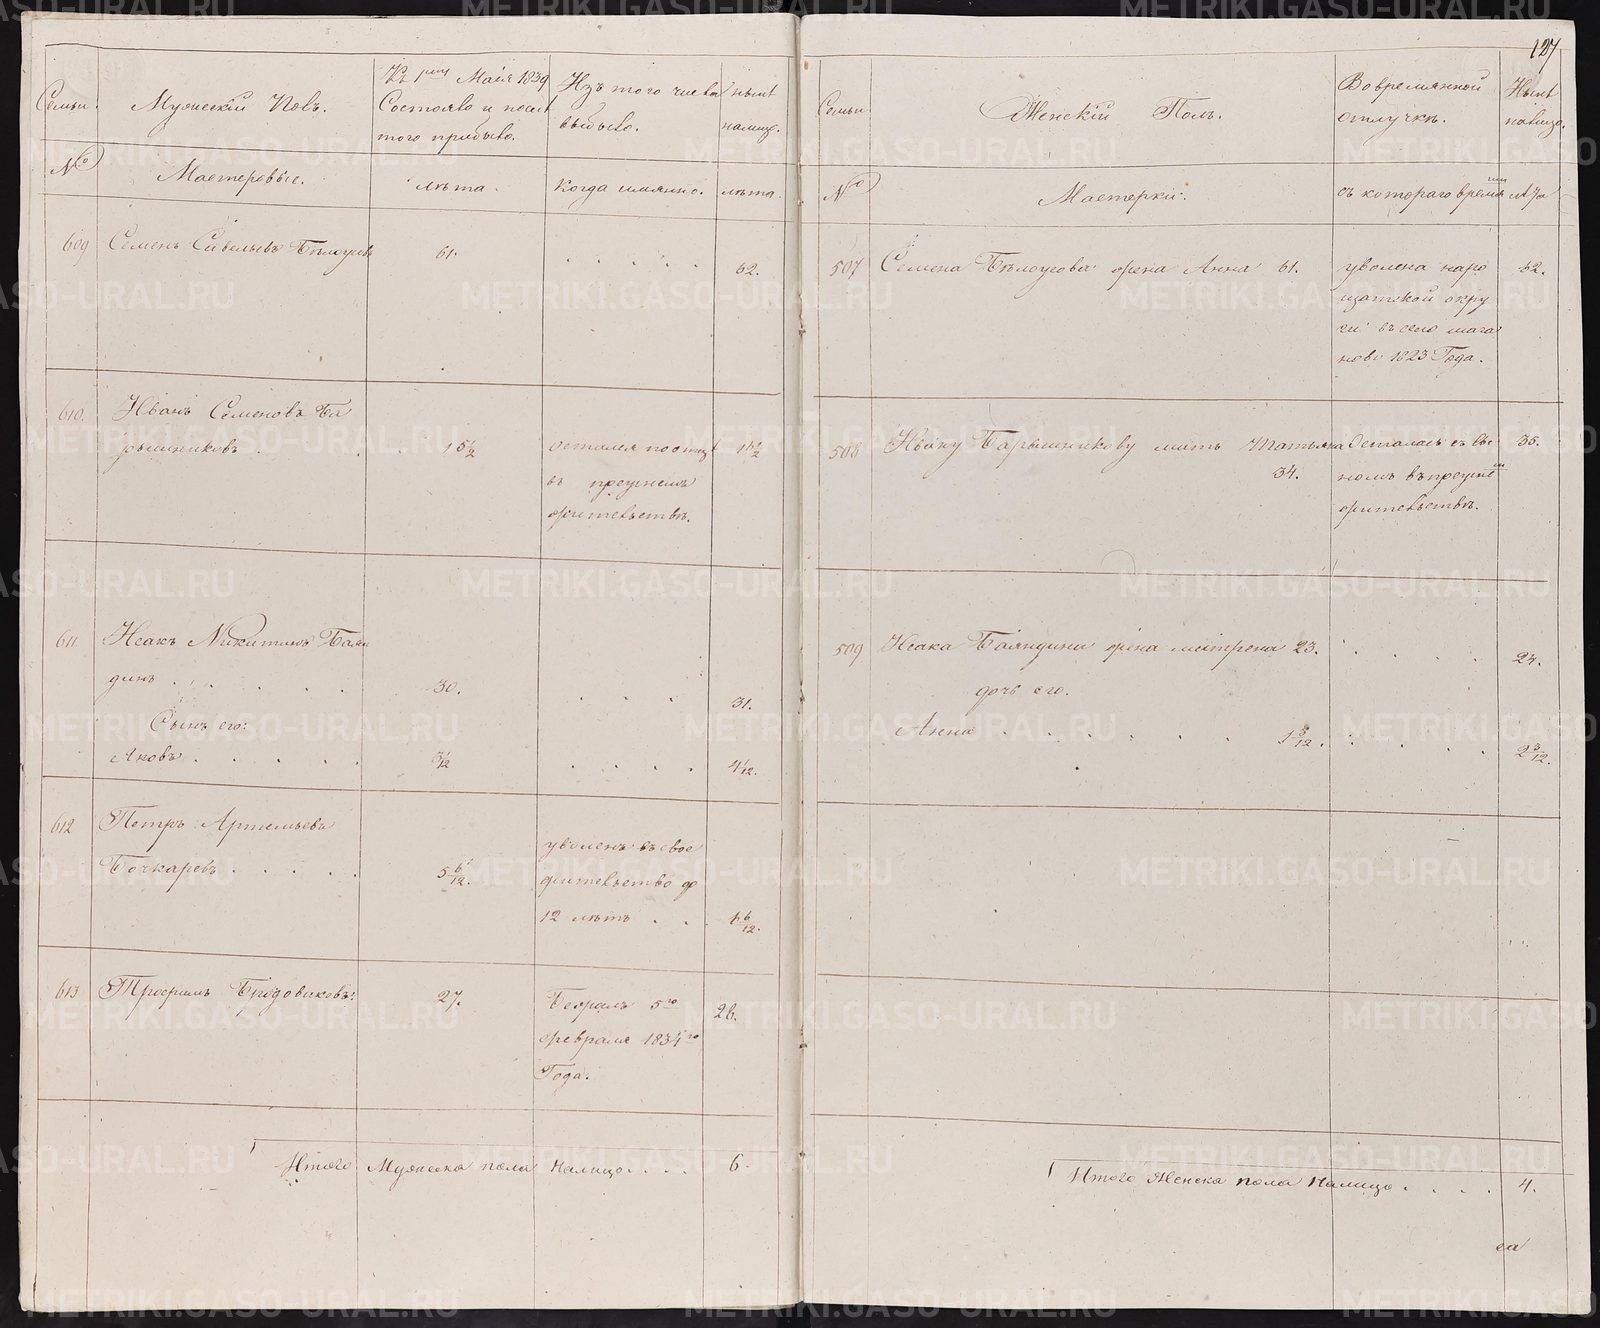 127
Семьи.
Мужескій Полъ.
Къ 1му Маія 1839
Состояло и после
того прибыло.
Изъ того числа
выбыло.
ныне
налицо.
№
Мастеровые.
лѣта.
Когда имянно.
лѣта.
609
Семенъ Савельевъ Бѣлоусовъ
61.
62.
610.
Иванъ Семеновъ Ба
рышниковъ
въ прежнемъ
жительствѣ.
611
Исакъ Никитинъ Баян
динъ
30.
31.
Сынъ его:
Яковъ
612
Петръ Артемьевъ
Бочкаревъ
5 6/12.
уволенъ въ свое
жительство до
12 лѣтъ
6 6/12.
613
Трофимъ Бродовиковъ.
27.
Бежалъ 5го
февраля 1834го
Года.
28.
Итого Мужеска пола налицо
6.
Семьи
Женскій Полъ.
Во временной
отлучкѣ.
Нынѣ
налицо.
№
Мастерки.
съ котораго времяни
лѣта
507
Семена Бѣлоусова жена Анна 61.
уволена
62.
округи въ село
1823 Года.
508
Ивану Барышникову мать Татьяна
34.
Осталась съ сы
номъ въ прежнемъ
жительствѣ.
35.
509
Исака Баяндина жена Матрена 23.
24.
дочь его.
Анна
1 3/12.
2 3/12.
Итого Женска пола Налицо
4.
METRIKI.GASO-URAL.RU